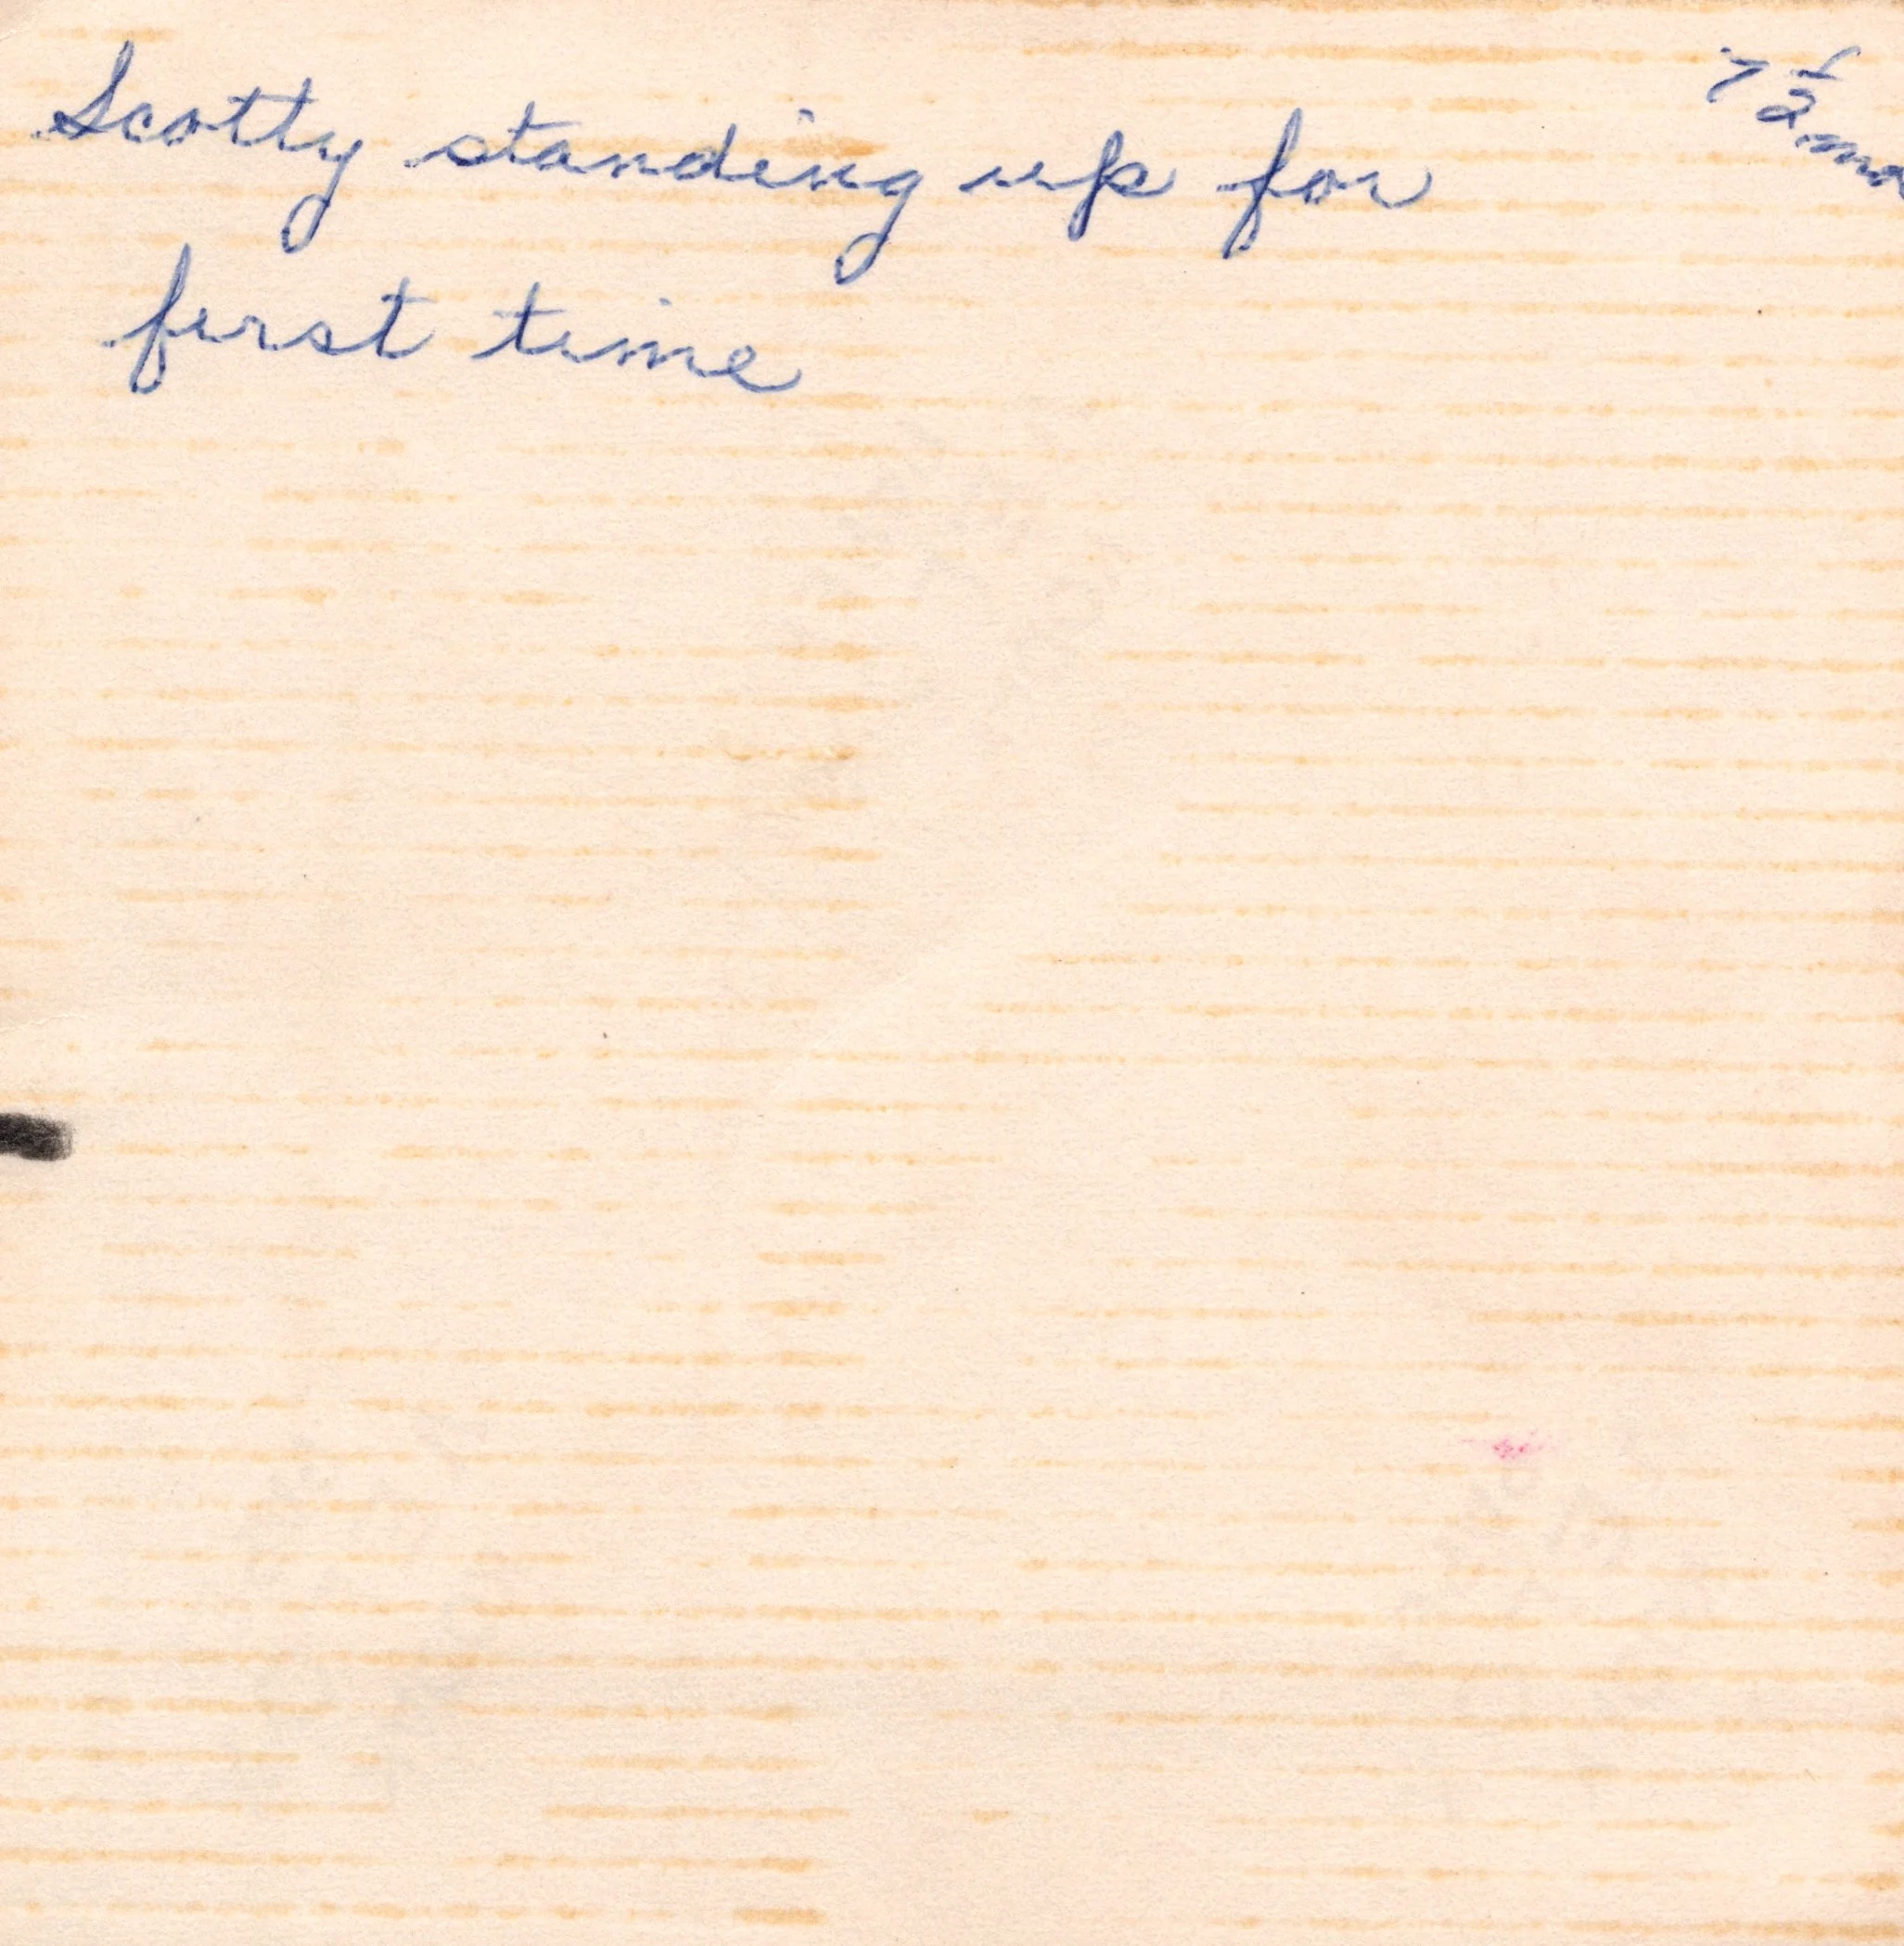 Scotty standing up for
first time
7 1/2 mo